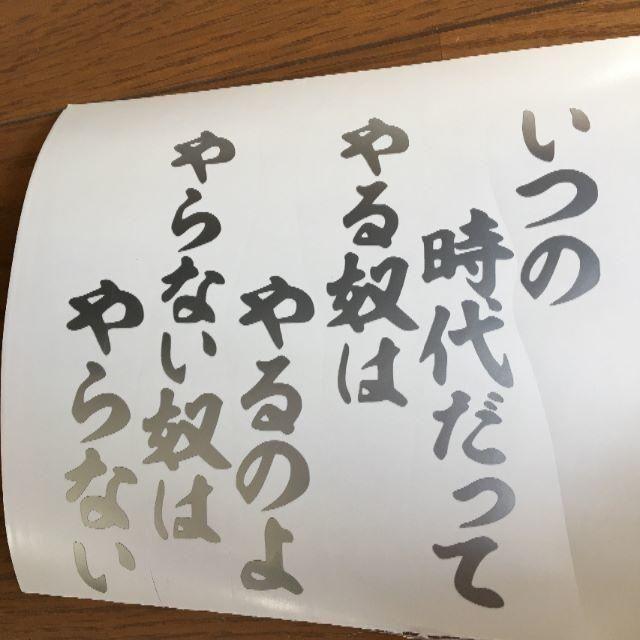 いつの
時代だって
やる奴は
やるのよ
やらない奴は
やらない